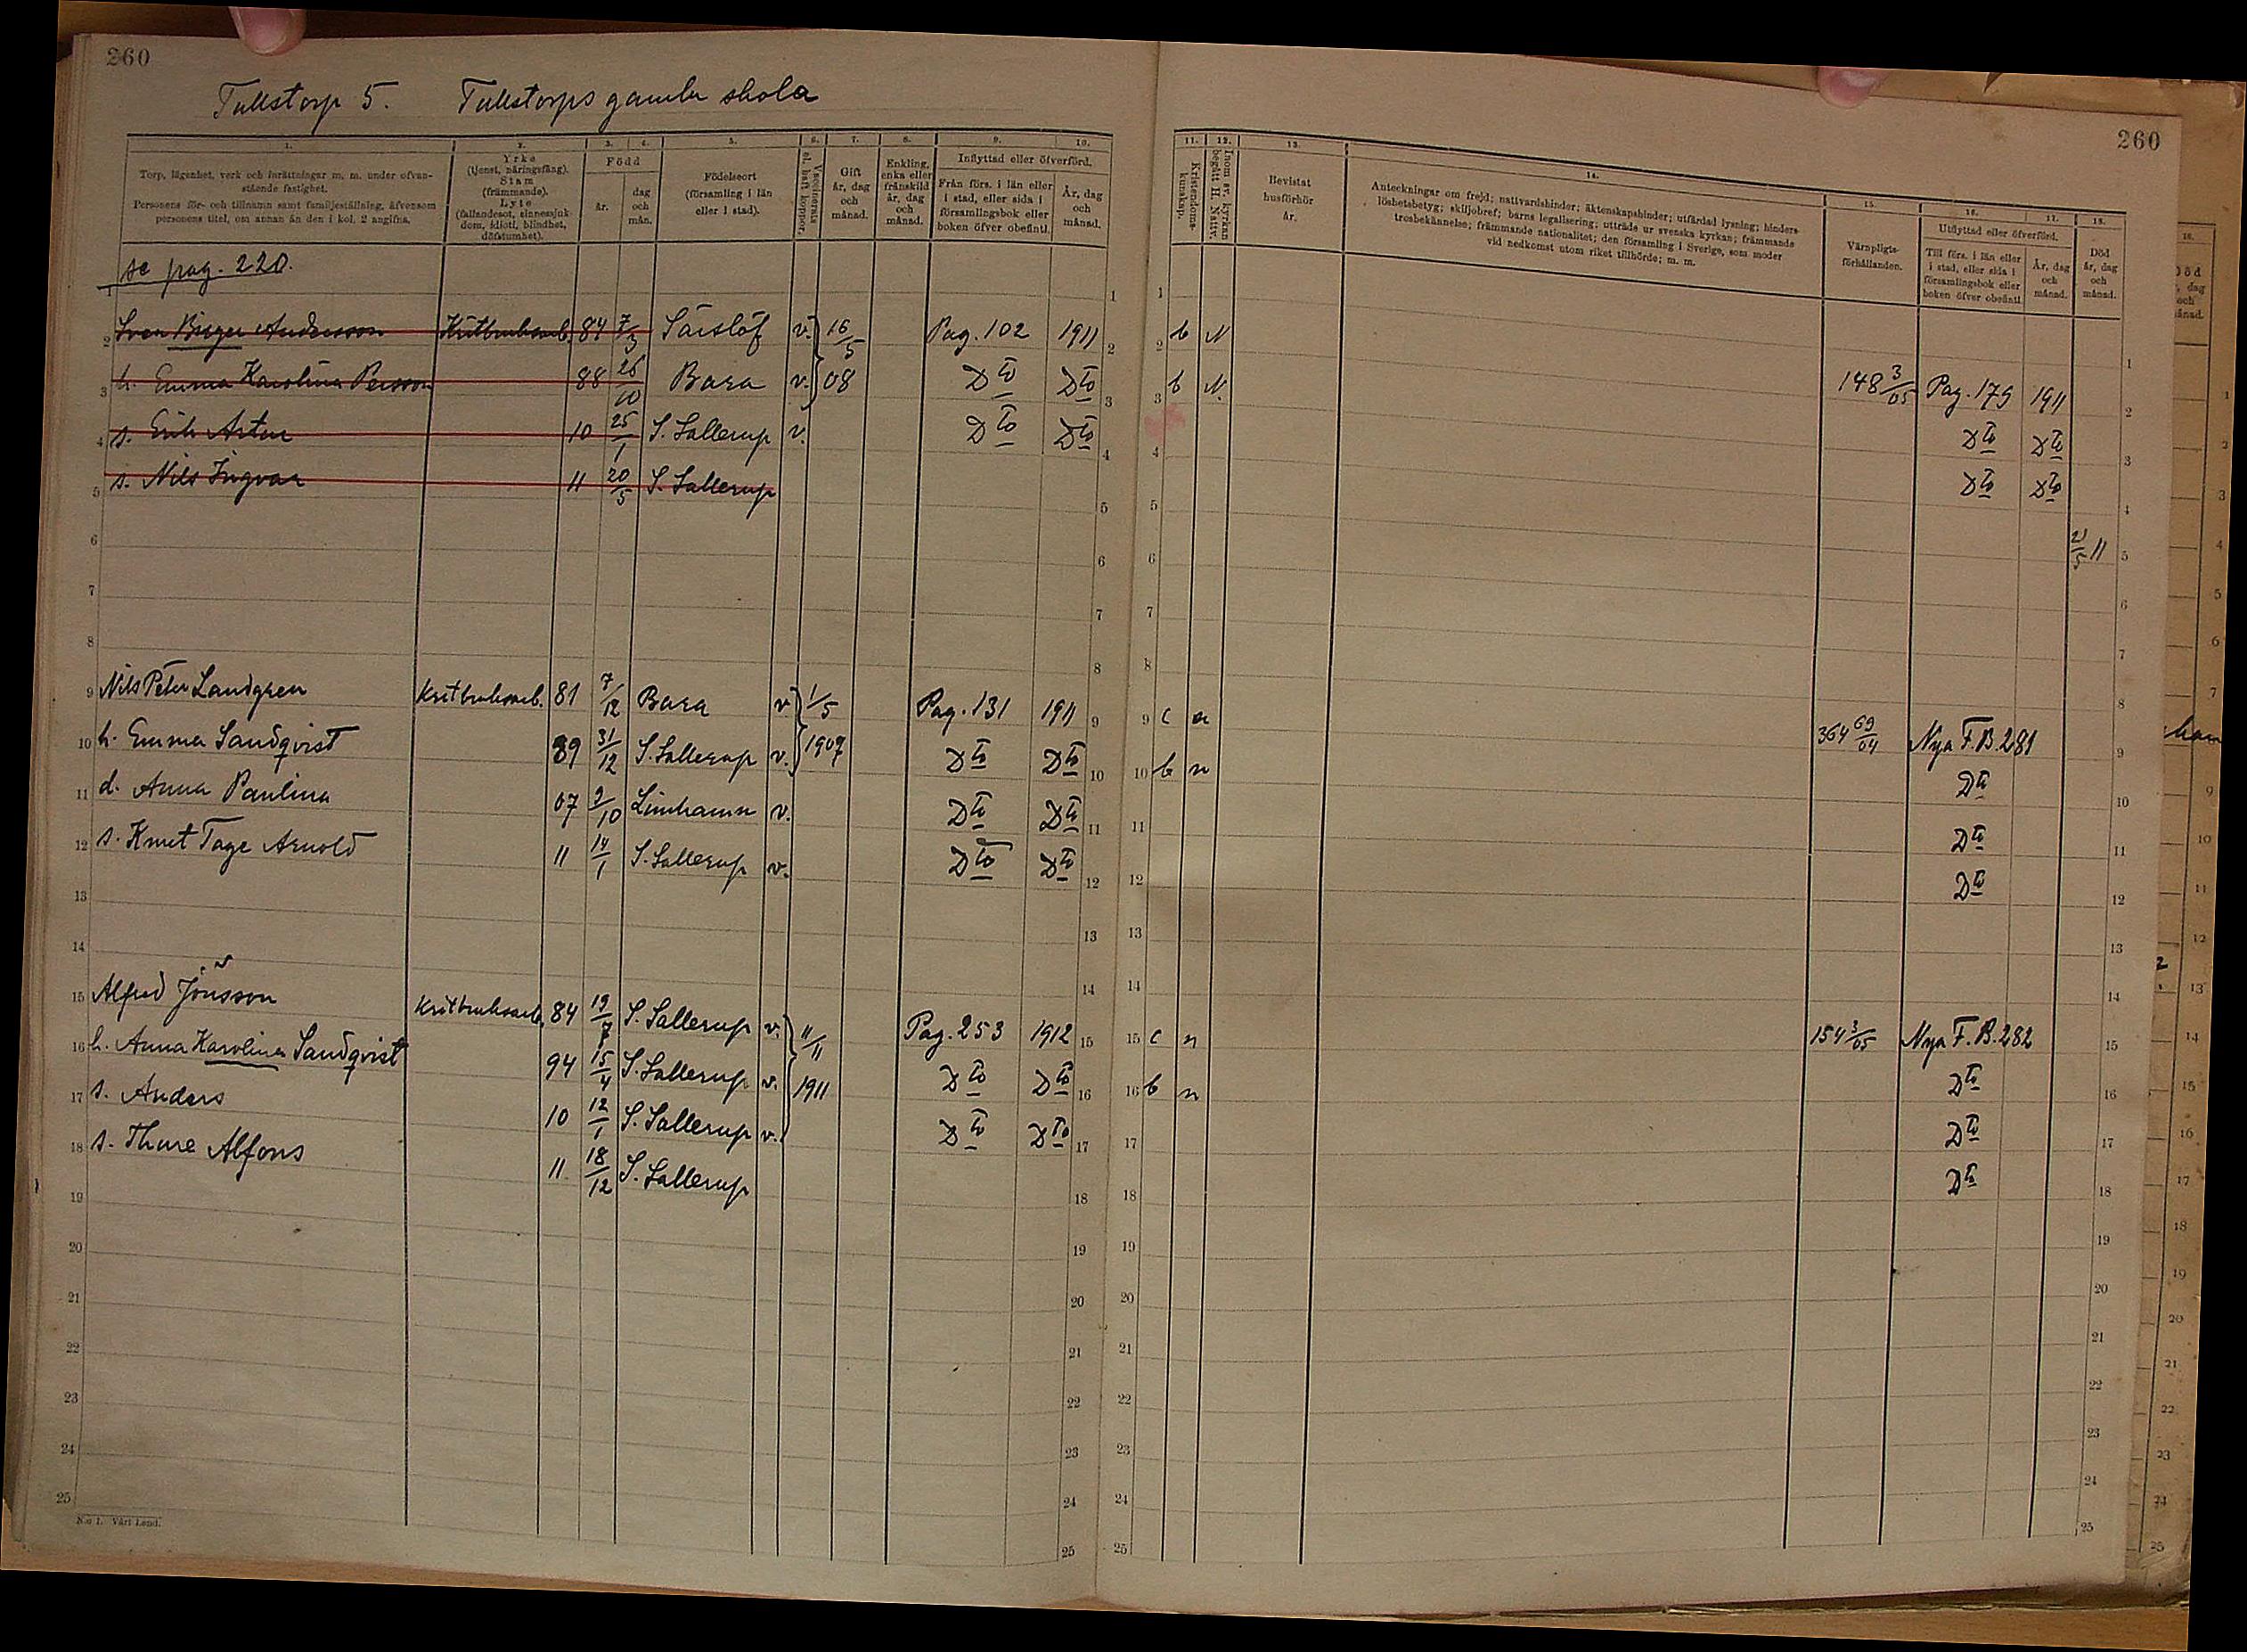 260
Tullstorp 5. Tullstorps gamla skola
1. 2. 3. 4. 5. 6. 7. 8. 9. 10.
Torp, lägenhet, verk och inrättningar m. m. under ofvanstående fastighet.
Personens för- och tillnamn samt familjeställning, äfvensom personens titel, om annan än den i kol. 2 angifna.
Yrke (tjenst, näringsfång). Stam (främmande). Lyte (fallandesot, sinnessjukdom, idioti, blindhet, döfstumhet).
Född år. dag och mån.
Födelseort (församling i län eller i stad).
Vaccinerats el. haft koppor.
Gift år, dag och månad.
Enkling, enka eller frånskild år, dag och månad.
Inflyttad eller öfverförd.
Från förs. i län eller i stad, eller sida i församlingsbok eller boken öfver obefintl.
År, dag och månad.
se pag. 220.
1
2 Sven Birger Andersson Kritbruksarb. 84 7/3 Särslöf v. 16/5 Pag. 102 1911 2
3 h. Emma Karolina Persson 88 26/10 Bara v. 08 Dto Dto 3
4 s. Erik Artur 10 25/1 S. Sallerup v. Dto Dto 4
5 s. Nils Ingvar 11 20/5 S. Sallerup 5
6
7
8
9 Nils Peter Landgren Kritbruksarb. 81 7/12 Bara v. 1/5 Pag. 131 1911 9
10 h. Emma Sandqvist 89 31/12 S. Sallerup v. 1907 Dto Dto 10
11 d. Anna Paulina 07 9/10 Limhamn v. Dto Dto 11
12 s. Knut Tage Arnold 11 14/1 S. Sallerup v. Dto Dto 12
13
14
15 Alfred Jönsson Kritbruksarb. 84 19/7 S. Sallerup v. 11/11 Pag. 253 1912 15
16 h. Anna Karolina Sandqvist 94 15/4 S. Sallerup v. 1911 Dto Dto 16
17 s. Anders 10 12/1 S. Sallerup v. Dto Dto 17
18 s. Thure Alfons 11 18/12 S. Sallerup 18
19
20
21
22
23
24
25
N:o 1. Vårt Land.
260
11. 12. 13. 14. 15. 16. 17. 18.
Kristendomskunskap.
Inom sv. kyrkan begått H. Nattv.
Bevistat husförhör år.
Anteckningar om frejd; nattvardshinder; äktenskapshinder; utfärdad lysning; hinderslöshetsbetyg; skiljobref; barns legalisering; utträde ur svenska kyrkan; främmande trosbekännelse; främmande nationalitet; den församling i Sverige, som moder vid nedkomst utom riket tillhörde; m. m.
Värnpligtsförhållanden.
Utflyttad eller öfverförd.
Till förs. i län eller i stad, eller sida i församlingsbok eller boken öfver obefintl.
År, dag och månad.
Död år, dag och månad.
1
2 b N 148 3/05 Pag. 179 1911 2
3 b N. Dto Dto 3
4 Dto Dto 4
5 21/5 11 5
6
7
8
9 c n 364 69/04 Nya F.B. 281 9
10 b n Dto 10
11 Dto 11
12 Dto 12
13
14
15 c n 154 3/05 Nya F.B. 282 15
16 b n Dto 16
17 Dto 17
18 Dto 18
19
20
21
22
23
24
25